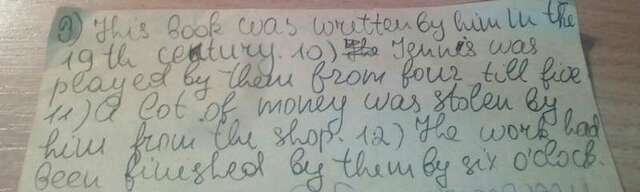 9) This book was written by him in the
19th century. 10) Tennis was
played by them from four till five
11) A lot of money was stolen by
him from the shop. 12) The work had
been finished by them by six o'clock.